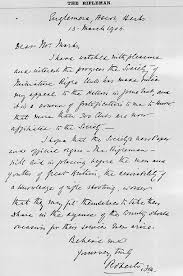 THE RIFLEMAN
Englemere, Ascot, Berks
13 March 1906.
Dear Mr.
I have watched with pleasure
and interest the progress the Society of
Miniature Rifle Clubs has made since
my appeal to the Nation in June last, and
it is a source of gratification to me to know
that more than 200 Clubs are now
affiliated to the Society —
I hope that the Society's newspaper
and official organ — The Rifleman —
will aid in placing before the men and
youths of Great Britain, the desirability of
a knowledge of rifle shooting, in order
that they may fit themselves to take their
share in the defence of the Country should
occasion for their services ever arise.
Believe me
Yours very truly
Roberts, F.M.